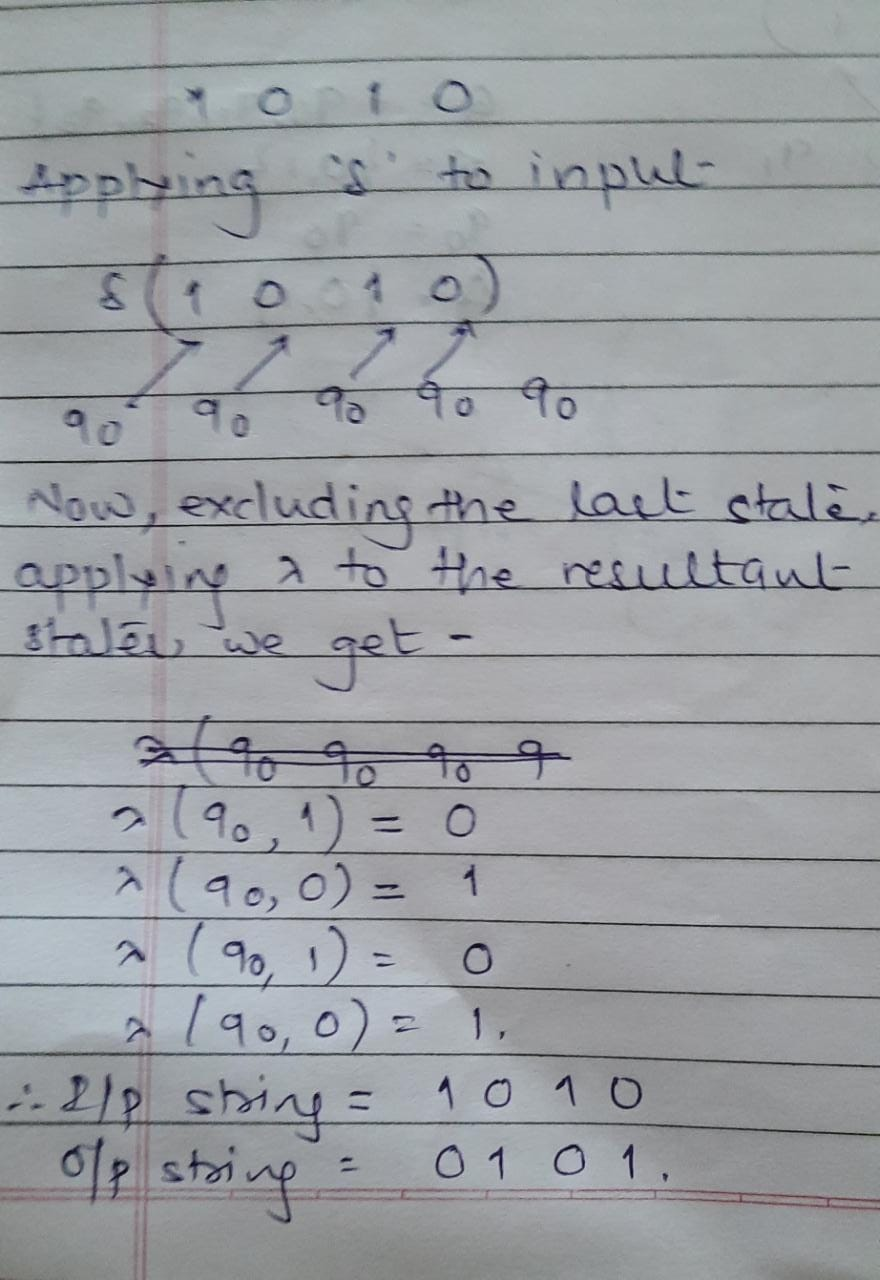 1 0 1 0
Applying 'δ' to input
δ ( 1 0 1 0 )
q0 q0 q0 q0 q0
Now, excluding the last state,
applying λ to the resultant
states, we get -
λ ( q0 q0 q0 q
λ ( q0, 1 ) = 0
λ ( q0, 0 ) = 1
λ ( q0, 1 ) = 0
λ ( q0, 0 ) = 1.
∴ I/p string = 1 0 1 0
O/p string = 0 1 0 1.